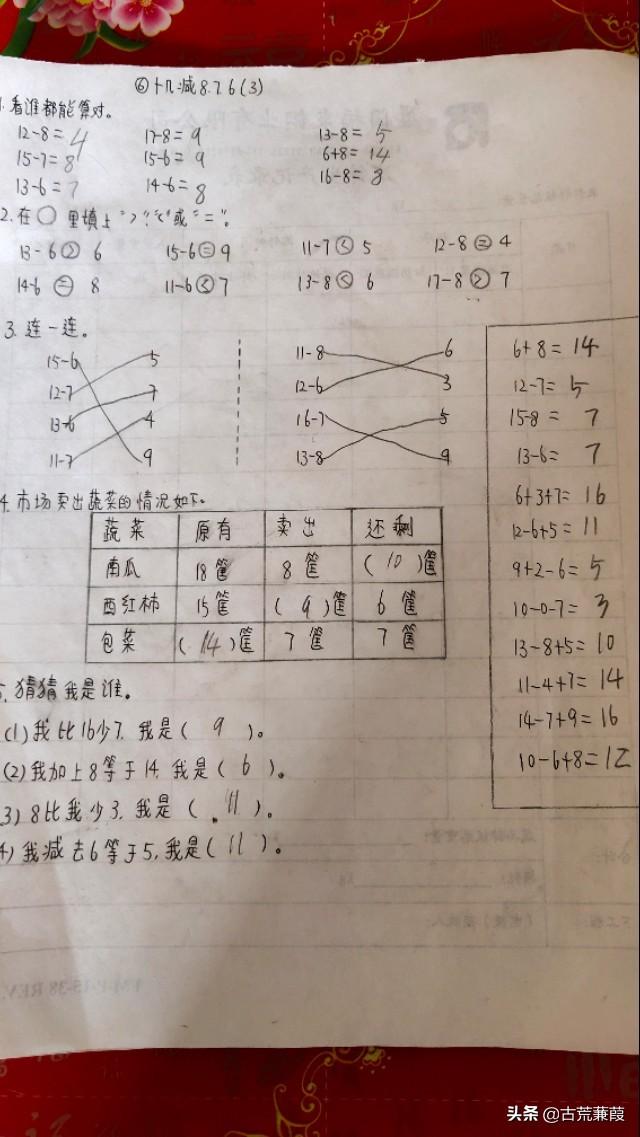 ⑥十几减8.7.6(3)
1.看谁都能算对。
12-8=4 17-8=9 13-8=5
15-7=8 15-6=9 6+8=14
13-6=7 14-6=8 16-8=8
2.在○里填上">""<"或"="。
13-6>6 15-6=9 11-7<5 12-8=4
14-6=8 11-6<7 13-8<6 17-8>7
3.连一连。
15-6 5 11-8 6
12-7 7 12-6 3
13-6 4 16-7 5
11-7 9 13-8 9
4.市场卖出蔬菜的情况如下。
蔬菜 原有 卖出 还剩
南瓜 18筐 8筐 (10)筐
西红柿 15筐 (9)筐 6筐
包菜 (14)筐 7筐 7筐
5.猜猜我是谁。
(1)我比16少7,我是(9)。
(2)我加上8等于14,我是(6)。
3)8比我少3,我是(11)。
4)我减去6等于5,我是(11)。
6+8=14
12-7=5
15-8=7
13-6=7
6+3+7=16
12-6+5=11
9+2-6=5
10-0-7=3
13-8+5=10
11-4+7=14
14-7+9=16
10-6+8=12
头条@古荒蒹葭